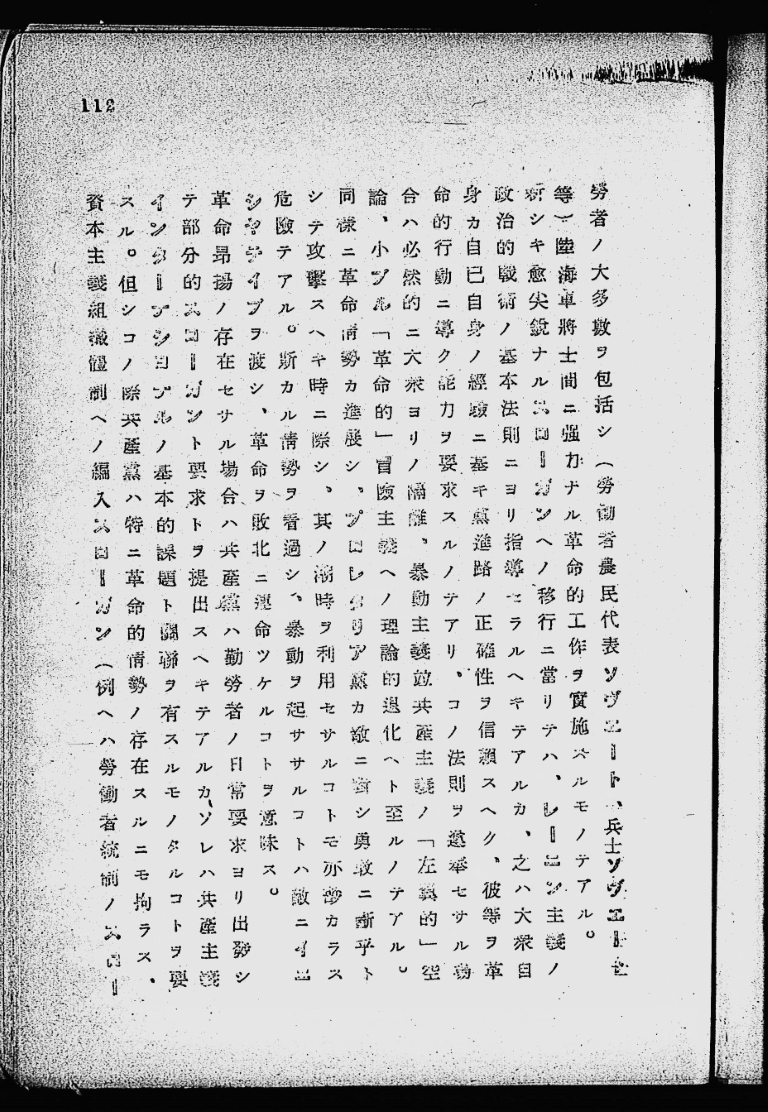 112
勞者ノ大多數ヲ包括シ(勞働者農民代表ソヴエート、兵士ソヴエート
等)陸海軍將士間ニ强力ナル革命的工作ヲ實施スルモノテアル。
新シキ愈尖銳ナルスローガンヘノ移行ニ當リテハ、レーニン主義ノ
政治的戰術ノ基本法則ニヨリ指導セラルヘキテアルカ、之ハ大衆自
身カ自己自身ノ經驗ニ基キ黨進路ノ正確性ヲ信賴スヘク、彼等ヲ革
命的行動ニ導ク能力ヲ要求スルノテアリ、コノ法則ヲ遵奉セサル場
合ハ必然的ニ大衆ヨリノ隔離、暴動主義竝共產主義ノ「左翼的」空
論、小ブル「革命的」冒險主義ヘノ理論的退化ヘト至ルノテアル。
同樣ニ革命情勢カ進展シ、プロレタリア黨カ敵ニ對シ勇敢ニ斷乎ト
シテ攻擊スヘキ時ニ際シ、其ノ潮時ヲ利用セサルコトモ亦尠カラス
危險テアル。斯カル情勢ヲ看過シ、暴動ヲ起ササルコトハ敵ニイニ
シヤテイブヲ渡シ、革命ヲ敗北ニ運命ツケルコトヲ意味ス。
革命昻揚ノ存在セサル場合ハ共產黨ハ勤勞者ノ日常要求ヨリ出發シ
テ部分的スローガント要求トヲ提出スヘキテアルカ、ソレハ共產主義
インターナシヨナルノ基本的課題ト關聯ヲ有スルモノタルコトヲ要
スル。但シコノ際共產黨ハ特ニ革命的情勢ノ存在スルニモ拘ラス、
資本主義組織體制ヘノ編入スローガン(例ヘハ勞働者統制ノスロー